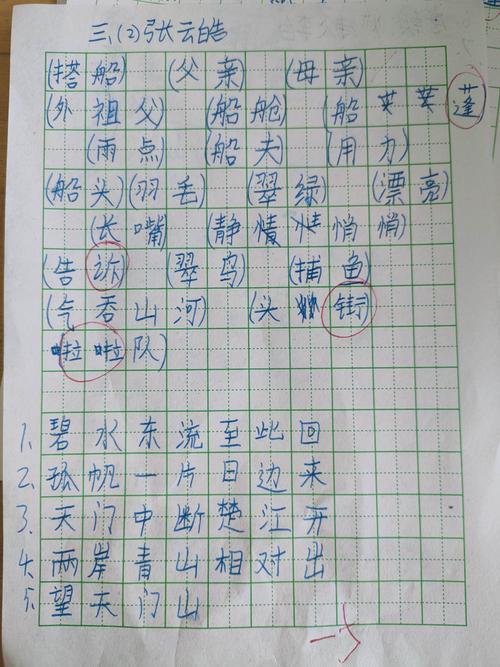 三、(2)张云皓
(搭船) (父亲) (母亲)
(外祖父) (船舱) (船蓬
(雨点) (船夫) (用力)
(船头)(羽毛) (翠绿) (漂亮)
(长嘴 (静悄悄)
(告诉) (翠鸟) (捕鱼)
(气吞山河) (头
啦啦队)
1、碧水东流至此回
2、孤帆一片日边来
3、天门中断楚江开
4、两岸青山相对出
5、望天门山